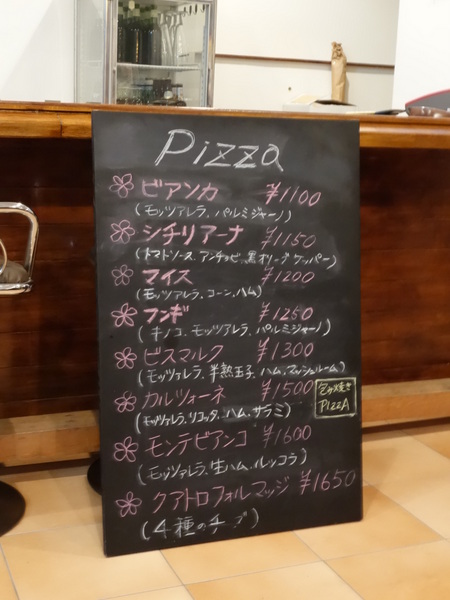 Pizza
ビアンカ ¥1100
(モッツァレラ、パルミジャーノ)
シチリアーナ ¥1150
(トマトソース、アンチョビ、黒オリーブ、ケッパー)
マイス ¥1200
(モッツァレラ、コーン、ハム)
フンギ ¥1250
(キノコ、モッツァレラ、パルミジャーノ)
ビスマルク ¥1300
(モッツァレラ、半熟玉子、ハム、マッシュルーム)
カルツォーネ ¥1500 包み焼き PIZZA
(モッツァレラ、リコッタ、ハム、サラミ)
モンテビアンコ ¥1600
(モッツァレラ、生ハム、ルッコラ)
クアトロフォルマッジ ¥1650
(4種のチーズ)